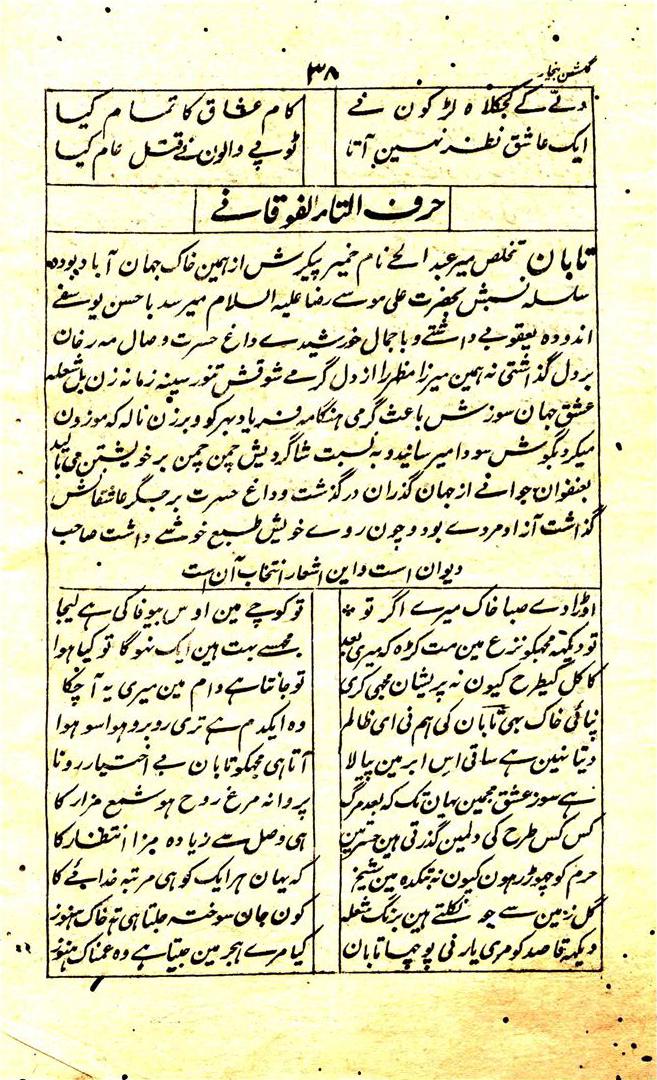 گلشن بیخار
۳۸
دلّے کے کجکلاہ لڑکون نے کام عشاق کا تمام کیا
ایک عاشق نظر نہین آتا ٹوپے والون نے قتل عام کیا
حرف التاء الفوقانے
تابان تخلص میر عبد الحے نام خمیر پیکرش از ہمین خاک جہان آباد بودہ
سلسلہ نسبش بحضرت علی موسے رضا علیہ السلام میرسد با حسن یوسفے
اندوہ یعقوبے داشتے و باجمال خورشیدے داغ حسرت وصال مہ رخان
بردل گذاشتی نہ ہمین میرزا مظہر را از دل گرمے شوقش تنور سینہ زمانہ زن بل شعلہ
عشق جہان سوزش باعث گرمی ہنگامہ فریاد بہر کو و برزن نالہ کہ موزون
میکرد بگوش سودا میرسانید و بہ نسبت شاگردیش چمن چمن بر خویشتن می بالید
بعنفوان جوانے از جہان گذران درگذشت و داغ حسرت بر جگر عاشقانش
گذاشت آزاد مردے بود و چون روے خویش طبع خوشے داشت صاحب
دیوان است و این اشعار انتخاب آن است
اوڑادے صبا خاک میرے اگر تو تو کوچے مین اوس بیوفا کی ہے لیجا
تو دیکھہ مجھکو نزع مین مت کڑہ کہ میری بعد مجھسے بہت ہین ایک نہوگا تو کیا ہوا
کاکل کیطرح کیون نہ پریشان مجھی کری تو جانتا ہے دام مین میری یہ آ چکا
نپائی خاک بھی تابان کی ہم نی ای ظالم وہ ایکدم ہے تری روبرو ہوا سو ہوا
دیتا نین ہے ساقی اس ابر مین پیالا آتا ہی مجھکو تابان بے اختیار رونا
ہے سوز عشق مجھمین یہان تک کہ بعد مرگ پروانہ مرغ روح ہو شمع مزار کا
کس کس طرح کی دلمین گذرتی ہین حسرتین ہی وصل سے زیادہ مزا انتظار کا
حرم کو چھوڑ رہون کیون نہ بتکدہ مین شیخ کہ یہان ہر ایک کو ہی مرتبہ خدائے کا
گل زمین سے جو نکلتے ہین برنگ شعلہ کون جان سوختہ جلتا ہی تہ خاک ہنوز
دیکھہ قاصد کو مری یار نی پوچھا تابان کیا مرے ہجر مین جیتا ہے وہ غمناک ہنوز